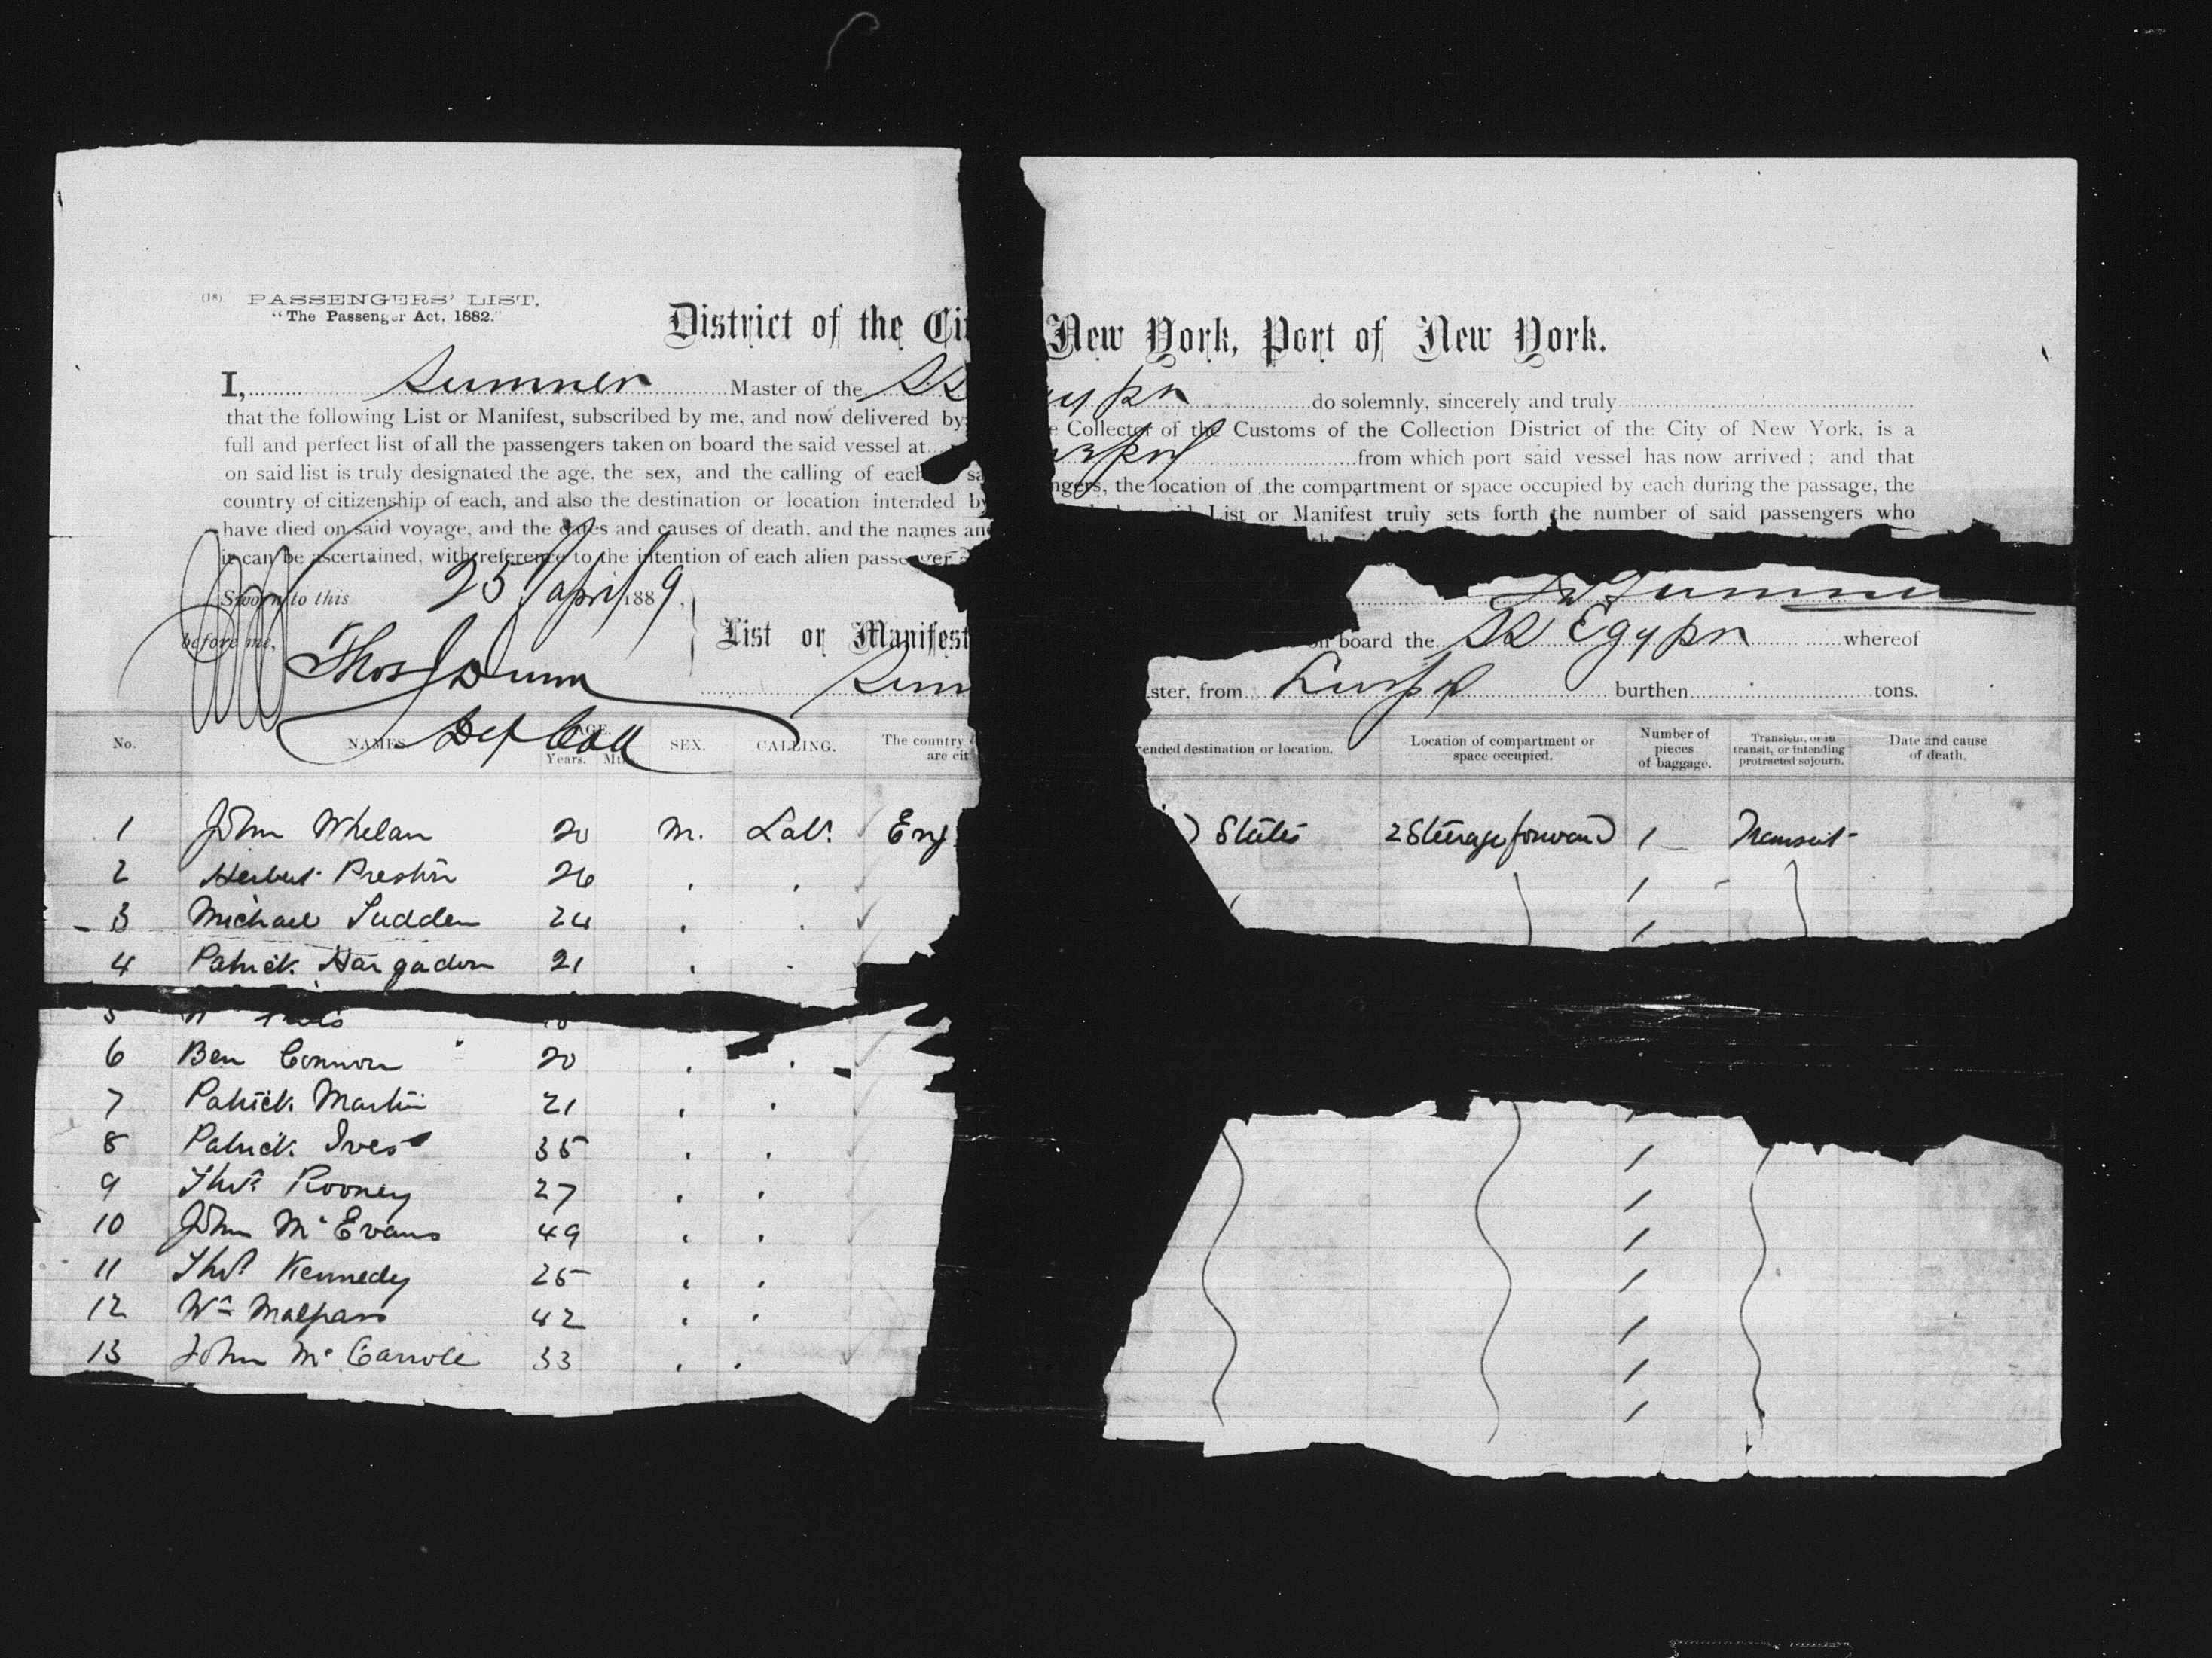 (18) PASSENGERS' LIST.
"The Passenger Act, 1882."
District of the Ci New York, Port of New York.
I, Sumner Master of the SS gypn do solemnly, sincerely and truly
that the following List or Manifest, subscribed by me, and now delivered by Collector of the Customs of the Collection District of the City of New York, is a
full and perfect list of all the passengers taken on board the said vessel at from which port said vessel has now arrived; and that
on said list is truly designated the age, the sex, and the calling of each sa ngers, the location of the compartment or space occupied by each during the passage, the
country of citizenship of each, and also the destination or location intended by List or Manifest truly sets forth the number of said passengers who
have died on said voyage, and the dates and causes of death, and the names an
it can be ascertained, with reference to the intention of each alien passenger
Sworn to this 25 April 1889, Sumner
before me, Thos J Dunn List or Manifest on board the SS Egypn whereof
Sum ster, from Livpl burthen tons.
Dep Coll
No. NAMES. AGE. Years. Mths. SEX. CALLING. The country are cit ended destination or location. Location of compartment or space occupied. Number of pieces of baggage. Transient, or in transit, or intending protracted sojourn. Date and cause of death.
1 John Whelan 20 M. Labr. Eng States 2 Steerage forward 1 Transit
2 Herbert Preston 26
3 Michael Sudden 24
4 Patrick Hargadon 21
5
6 Ben Connor 20
7 Patrick Martin 21
8 Patrick Ives 35
9 Thos Rooney 27
10 John McEvans 49
11 Thos Kennedy 25
12 Wm Malpass 42
13 John McCarroll 33